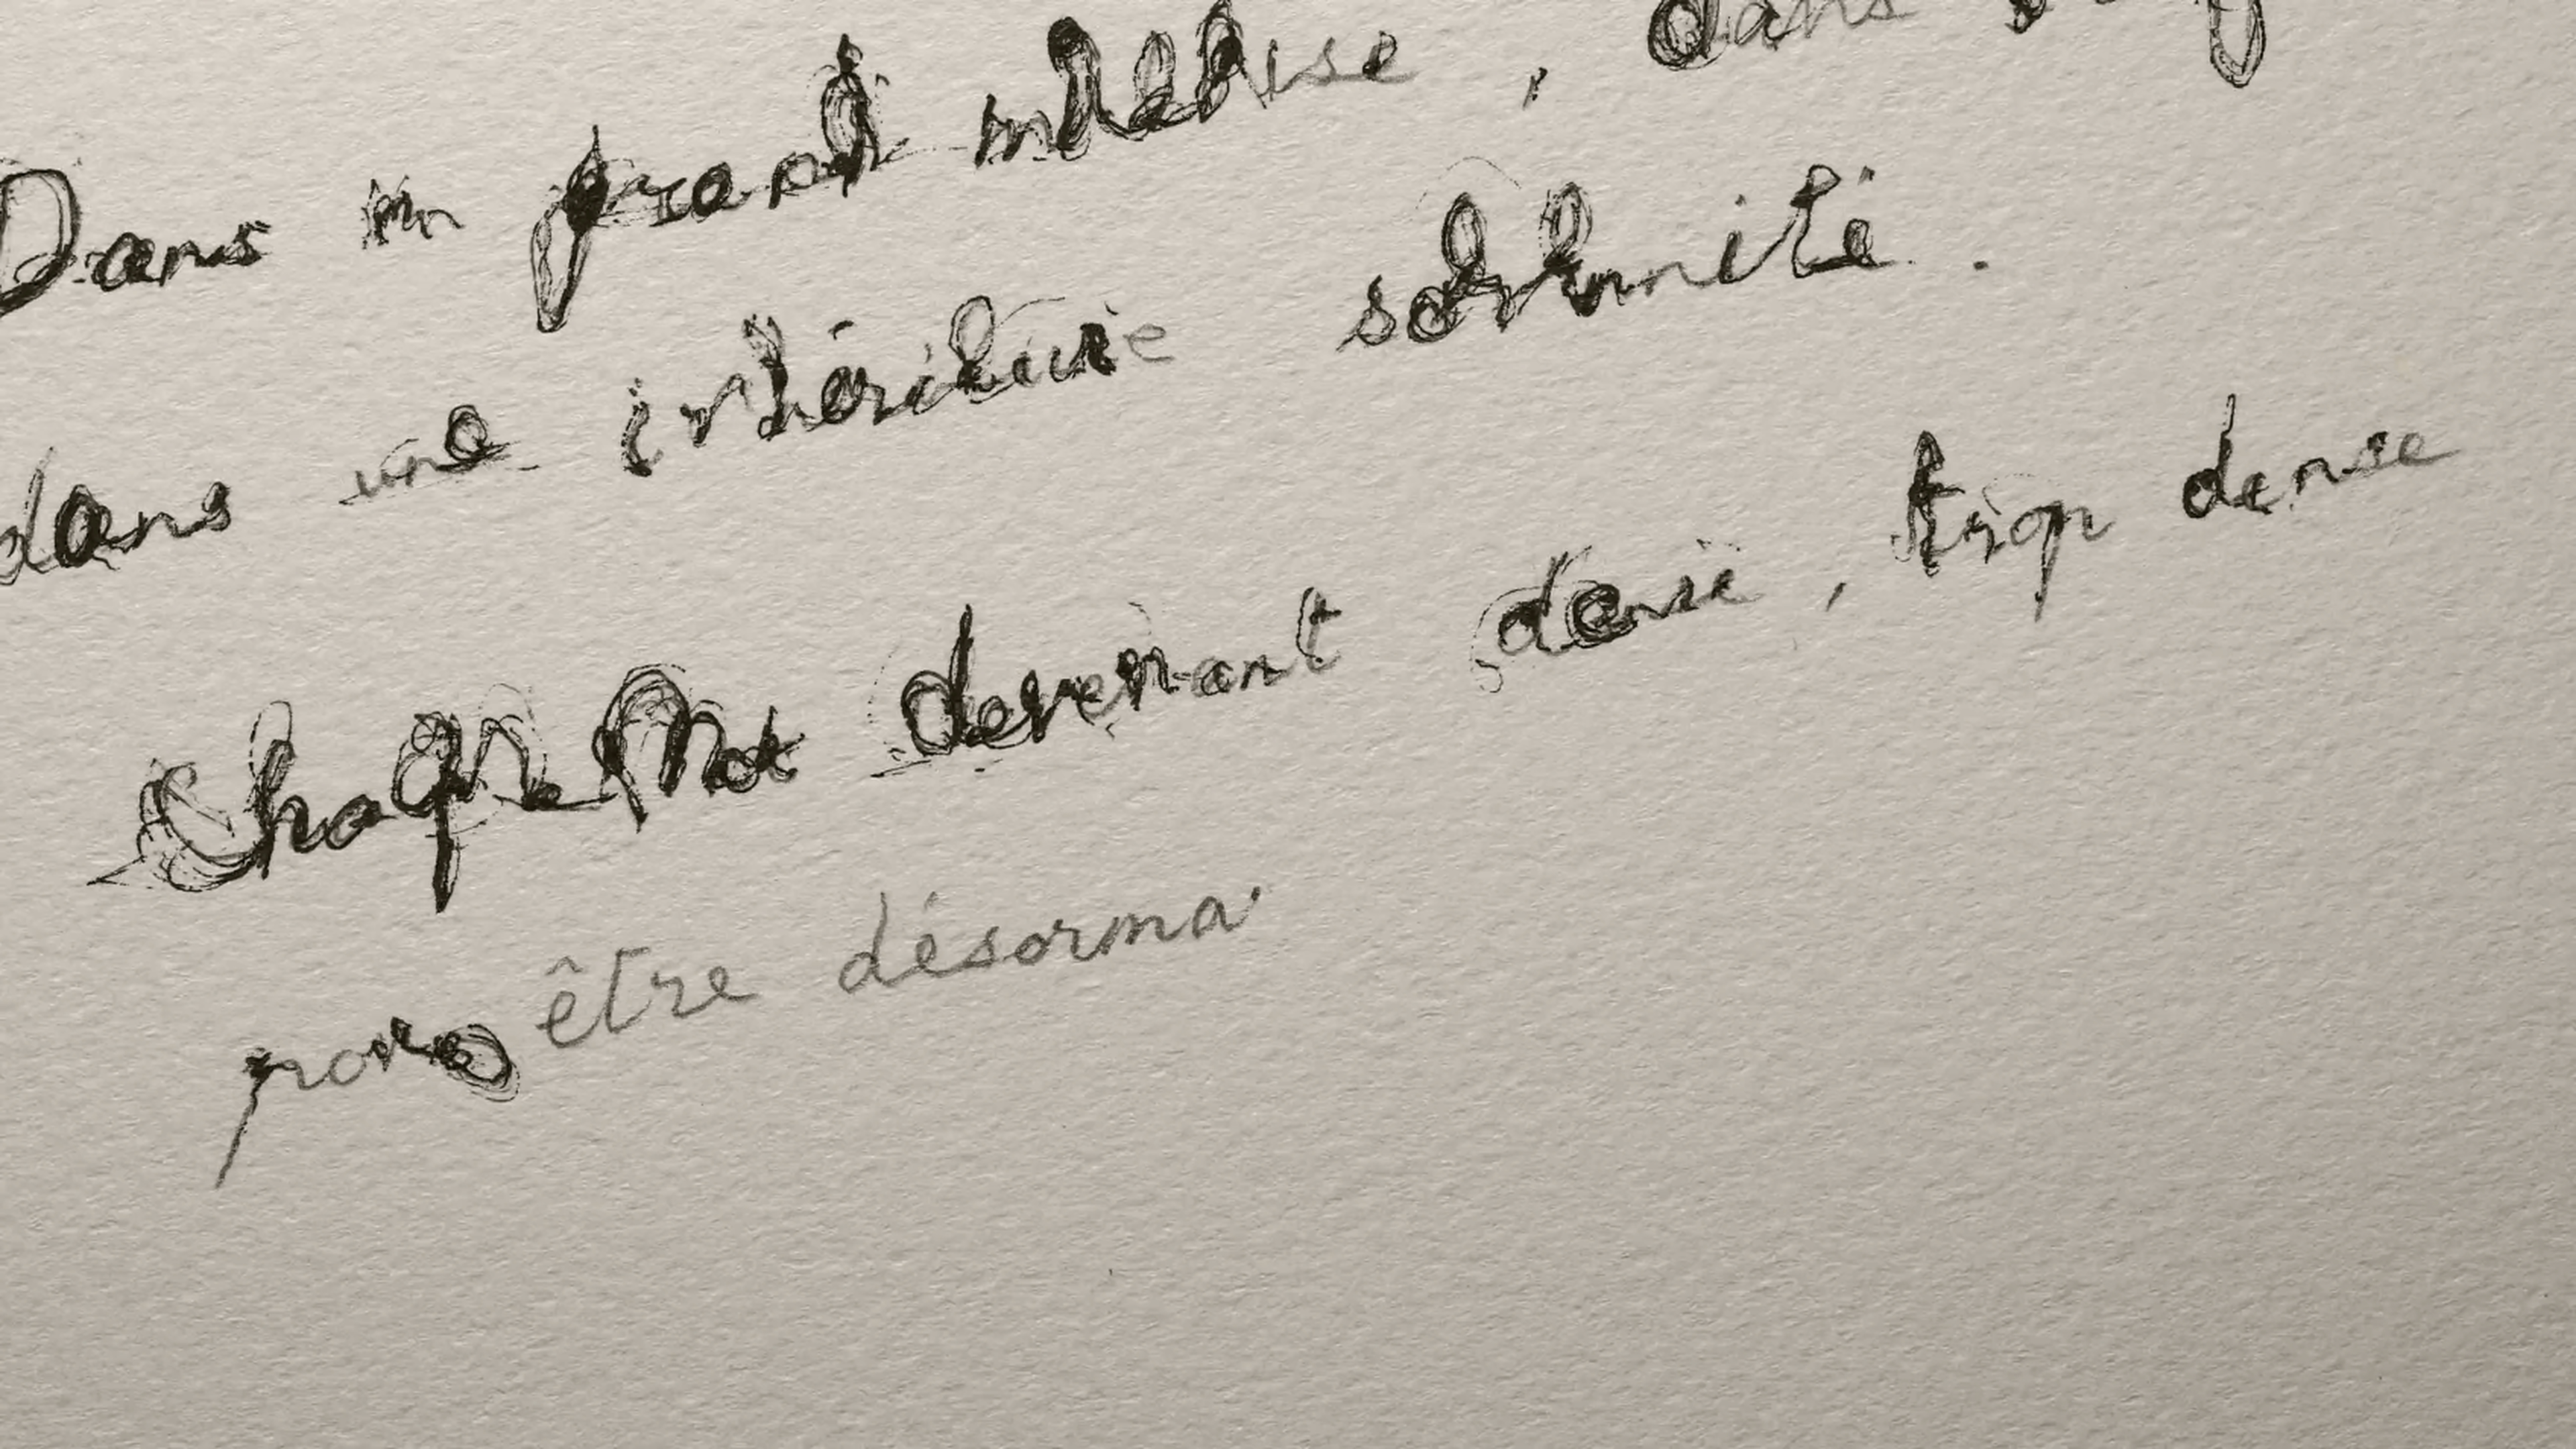 Dans un grand malaise, dans
dans une intérieure solennité.
Chaque Mot devenant dense, trop dense
pour être désorma